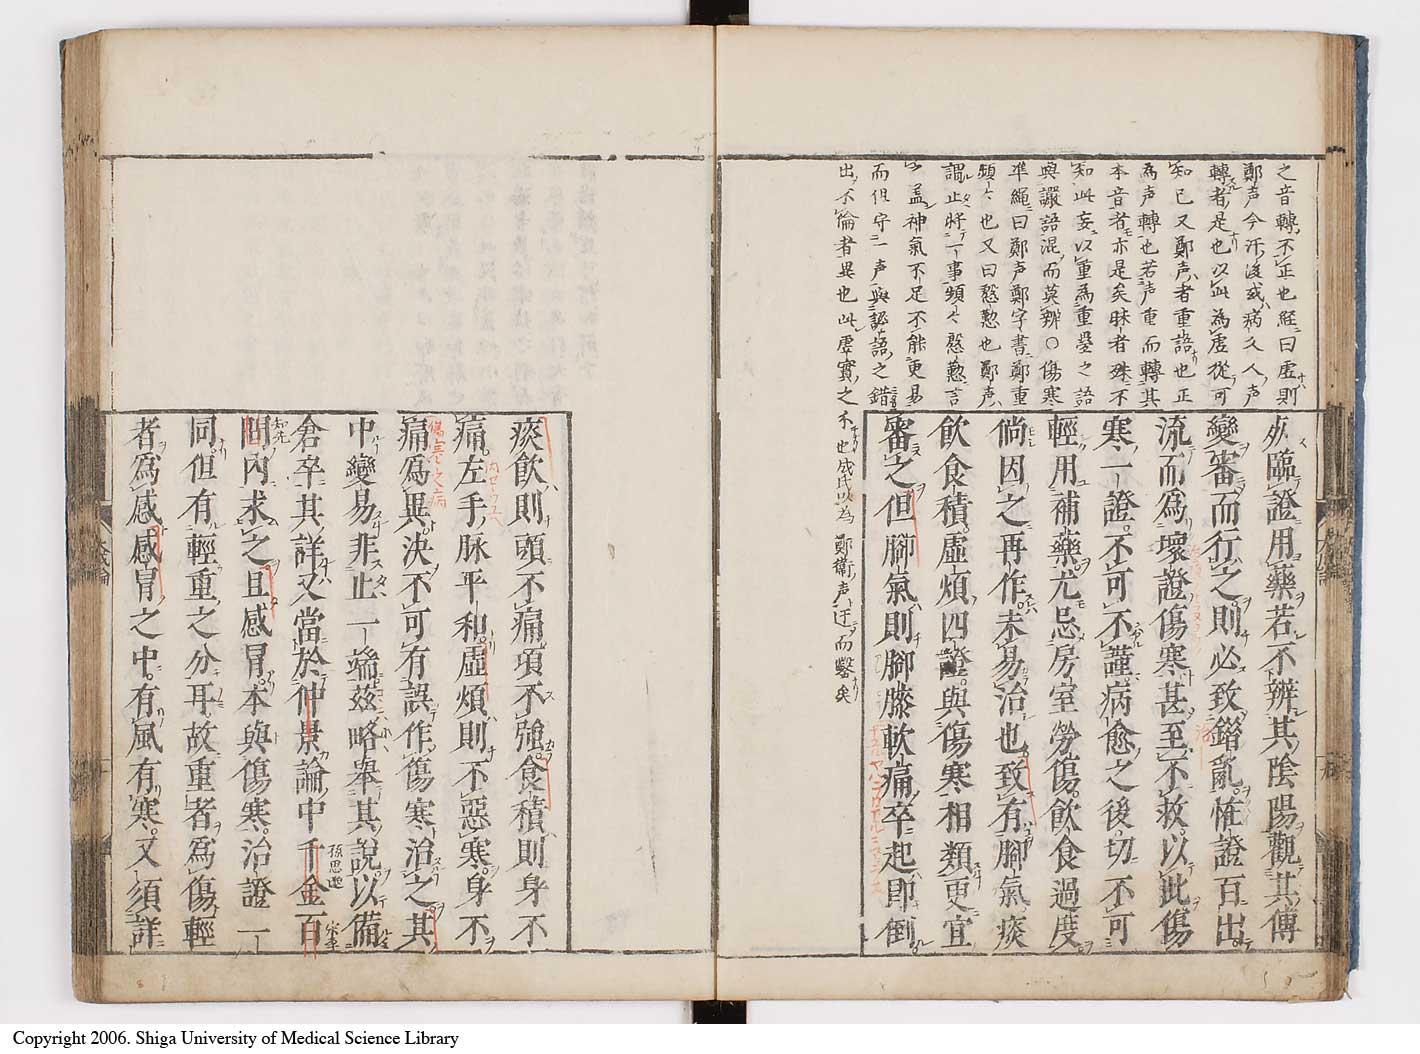 之音轉不正也経曰虚則
鄭声今汗後或病久人声
轉者是也以此為虚從可
知已又鄭声者重語也正
為声轉也若声重而轉其
本音者亦是矣昧者殊不
知此妄以重為重疊之語
與讝語混而莫辨○傷寒
準繩曰鄭声鄭字書鄭重
頻々也又曰慇懃也鄭声
謂止將一事頻々慇懃言
之蓋神氣不足不能更易
而但守一声與讝語之錯
出不倫者異也此虚實之
不也成氏以為鄭衛声迂而鑿矣
疾臨證用藥若不辨其陰陽觀其傳
變審而行之則必致錯亂恠證百出
流而為壞證傷寒甚至不救以此傷
寒一證不可不謹病愈之後切不可
輕用補藥尤忌房室勞傷飲食過度
倘因之再作未易治也致有脚氣痰
飲食積虛煩四證與傷寒相類更宜
審之但脚氣則脚膝軟痛卒起即倒
痰飲則頭不痛項不強食積則身不
痛左手脉平和虛煩則不惡寒身不
傷寒之病
痛為異決不可有誤作傷寒治之其
中變易非止一端茲略舉其說以備
倉卒其詳又當於仲景論中千金百
孫思邈
問內求之且感冒本與傷寒治證一
同但有輕重之分耳故重者為傷輕
者為感感冒之中有風有寒又須詳
Copyright 2006. Shiga University of Medical Science Library